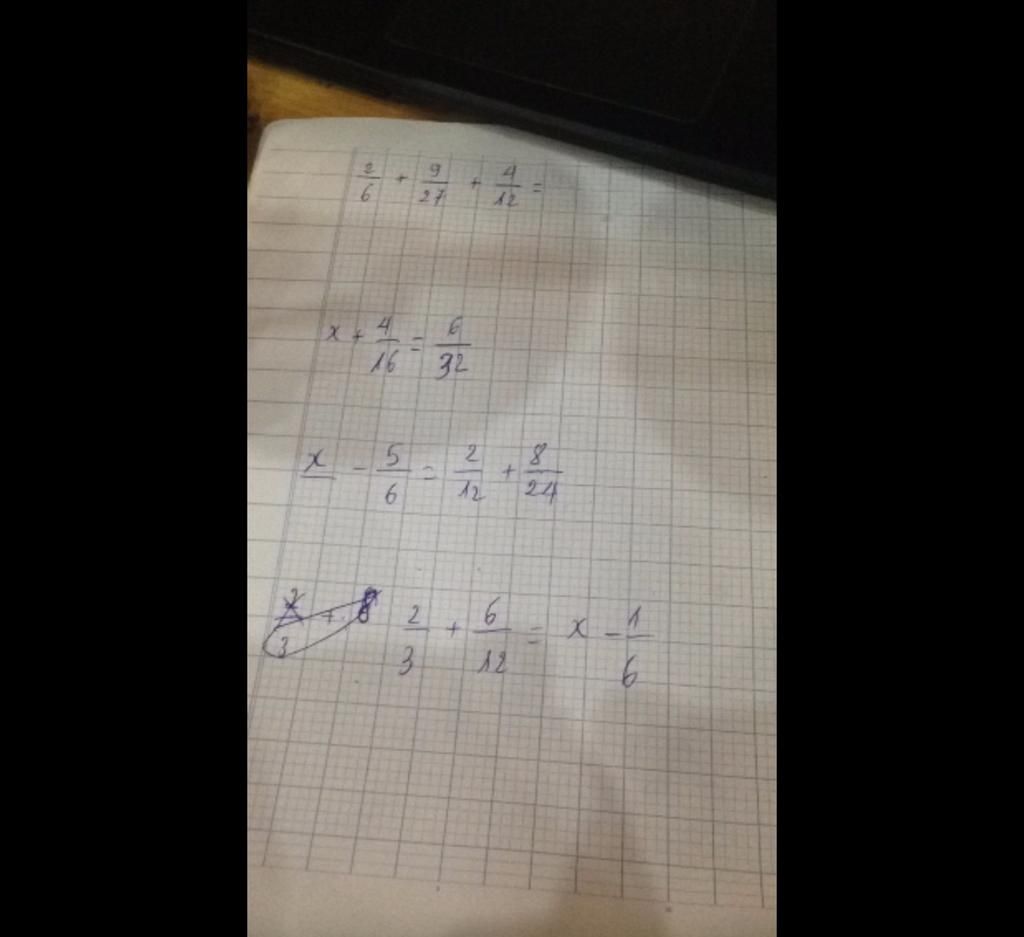 2/6 + 9/27 + 4/12 =
x + 4/16 = 6/32
x - 5/6 = 2/12 + 8/24
2/3 + 6/12 = x - 1/6